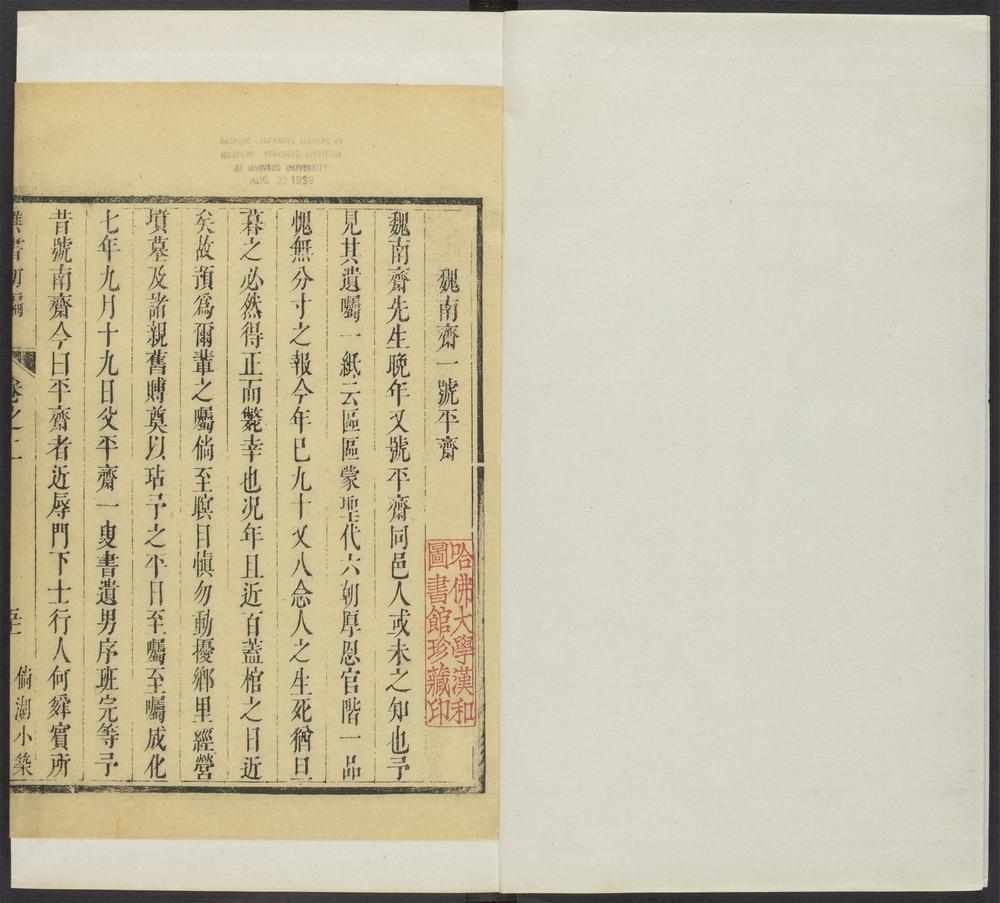 CHINESE - JAPANESE LIBRARY OF
HARVARD - YENCHING INSTITUTE
AT HARVARD UNIVERSITY
AUG 22 1939
魏南齋一號平齋
魏南齋先生晚年又號平齋同邑人或未之知也予
見其遺囑一紙云區區蒙聖代六朝厚恩官階一品
愧無分寸之報今年已九十又八念人之生死猶旦
暮之必然得正而斃幸也況年且近百蓋棺之日近
矣故預爲爾輩之囑倘至瞑目愼勿動擾鄉里經營
墳墓及諸親舊賻奠以玷予之平日至囑至囑成化
七年九月十九日父平齋一叟書遺男序班完等予
昔號南齋今曰平齋者近辱門下士行人何舜賓所
樵書初編
卷之二
倘湖小築
哈佛大學漢和
圖書館珍藏印